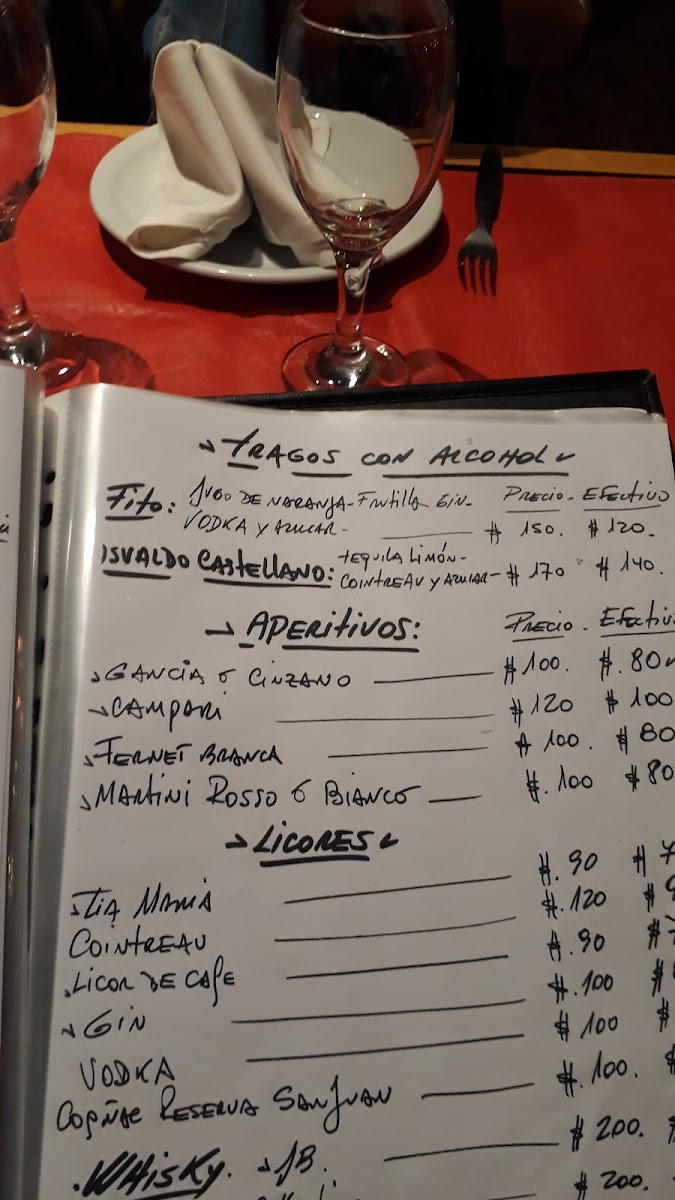 TRAGOS CON ALCOHOL
Fito: JUGO DE NARANJA - Frutilla Gin - PRECIO - EFECTIVO
VODKA Y AZUCAR - $ 150. $ 120.
OSVALDO CASTELLANO: TEQUILA LIMÓN -
COINTREAU Y AZUCAR - $ 170 $ 140.
APERITIVOS: PRECIO - EFECTIVO
GANCIA Ó CINZANO $ 100. $. 80
CAMPARI $ 120 $ 100
FERNET BRANCA $ 100. $ 80
MARTINI ROSSO Ó BIANCO $. 100 $ 80
LICORES
TIA MARIA $. 90 $ 7
COINTREAU $. 120 $ 9
LICOR DE CAFE $. 90 $ 7
GIN $. 100 $
VODKA $ 100 $
COÑAC RESERVA SAN JUAN $. 100.
WHISKY. JB. $ 200.
$ 200.